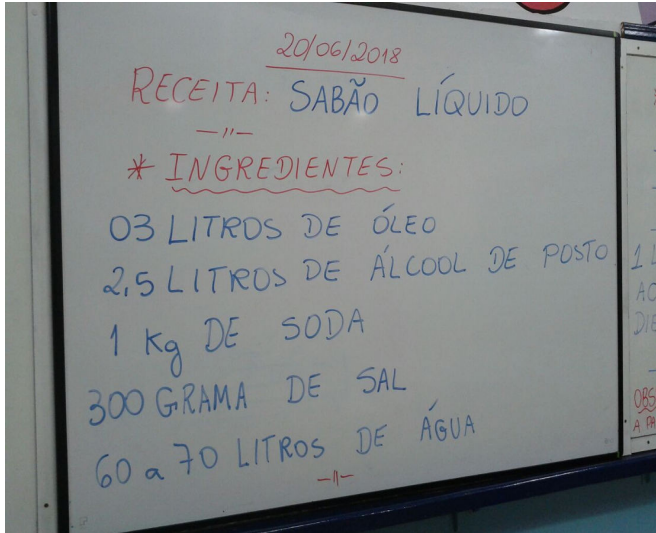 20/06/2018
RECEITA: SABÃO LÍQUIDO
—"—
* INGREDIENTES:
03 LITROS DE ÓLEO
2,5 LITROS DE ÁLCOOL DE POSTO
1 Kg DE SODA
300 GRAMA DE SAL
60 a 70 LITROS DE ÁGUA
—"—
1 L
AO
DIE
OBS
A PA